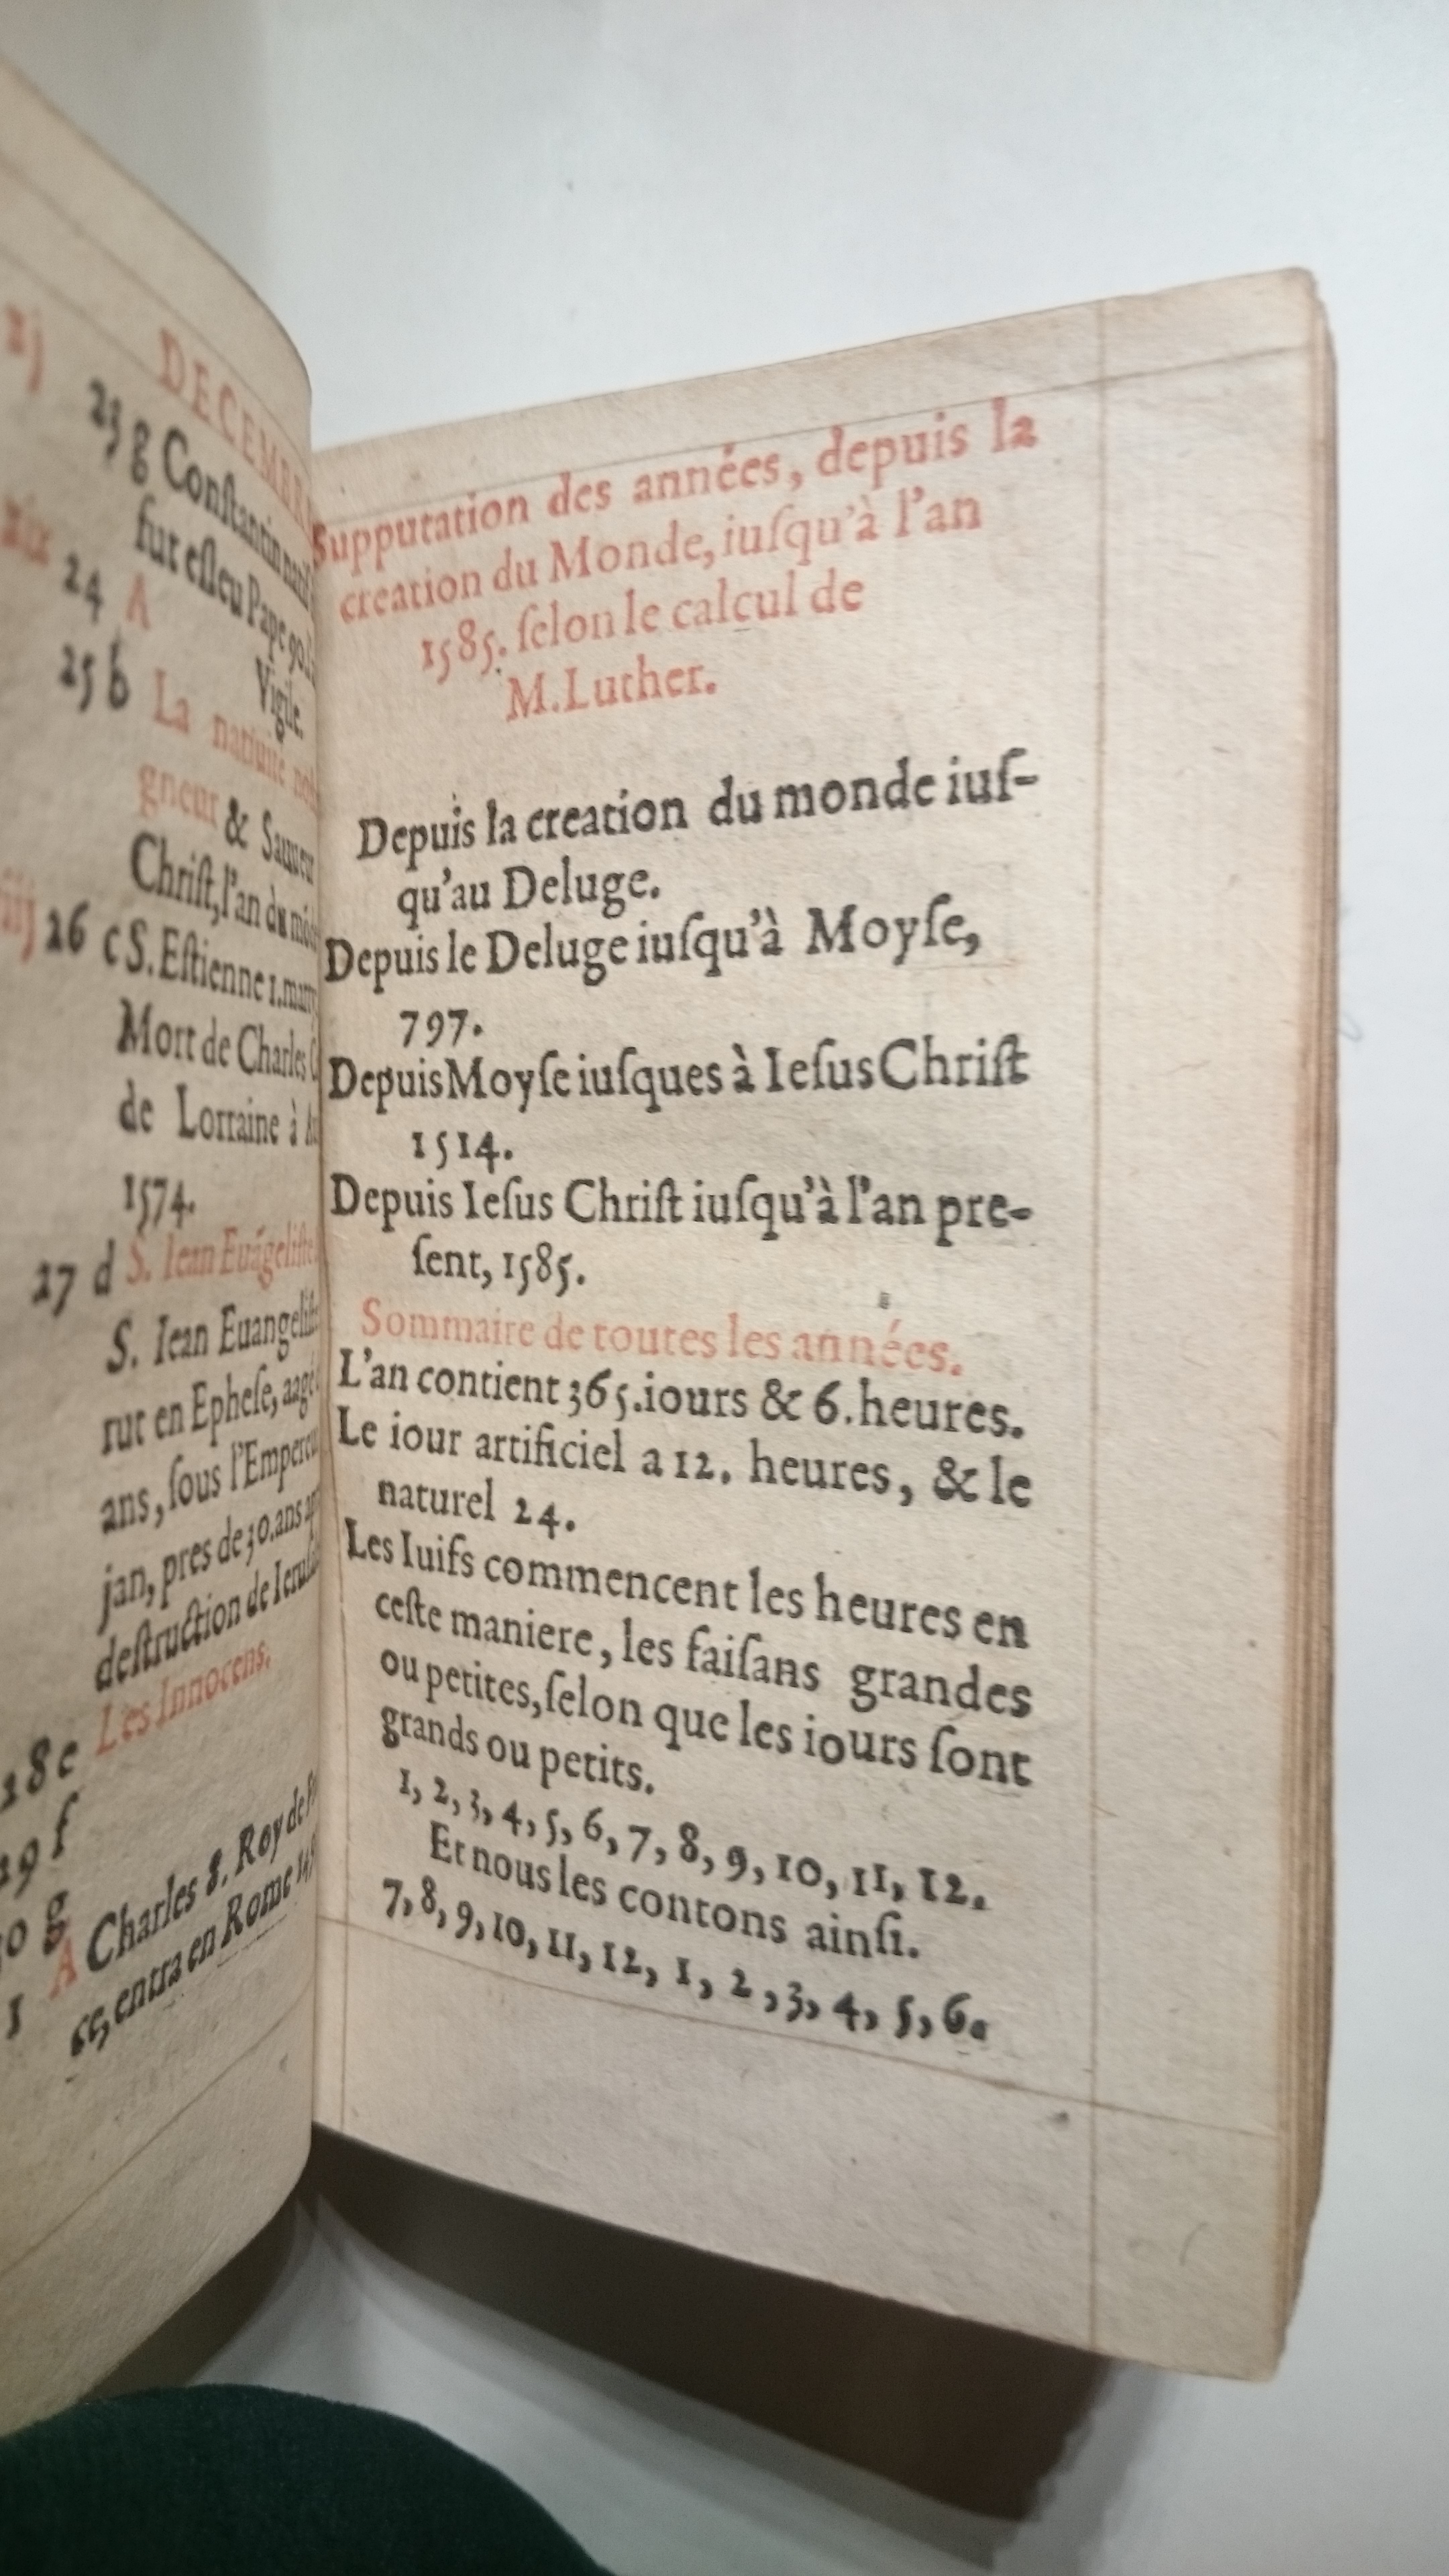 DECEMBR
xj 23 g Conſtantin
fut eſleu Pape 90.
xix 24 A Vigile.
25 b La natiuité
gneur & Sauueu
Chriſt, l'an du
iij 26 c S. Eſtienne 1.
Mort de Charles
de Lorraine à
1574.
27 d S. Iean Euágeliſte
S. Iean Euangeliſ
rut en Epheſe, aagé
ans, ſous l'Empereu
jan, pres de 30. ans
deſtruction de Ieruſa
18 e Les Innocens.
29 f
30 g
1 A Charles 8. Roy de
ce, entra en Rome
Supputation des années, depuis la
creation du Monde, iuſqu'à l'an
1585. ſelon le calcul de
M. Luther.
Depuis la creation du monde iuſ-
qu'au Deluge.
Depuis le Deluge iuſqu'à Moyſe,
797.
Depuis Moyſe iuſques à Ieſus Chriſt
1514.
Depuis Ieſus Chriſt iuſqu'à l'an pre-
ſent, 1585.
Sommaire de toutes les années.
L'an contient 365. iours & 6. heures.
Le iour artificiel a 12. heures, & le
naturel 24.
Les Iuifs commencent les heures en
ceſte maniere, les faiſans grandes
ou petites, ſelon que les iours ſont
grands ou petits.
1, 2, 3, 4, 5, 6, 7, 8, 9, 10, 11, 12.
Et nous les contons ainſi.
7, 8, 9, 10, 11, 12, 1, 2, 3, 4, 5, 6.